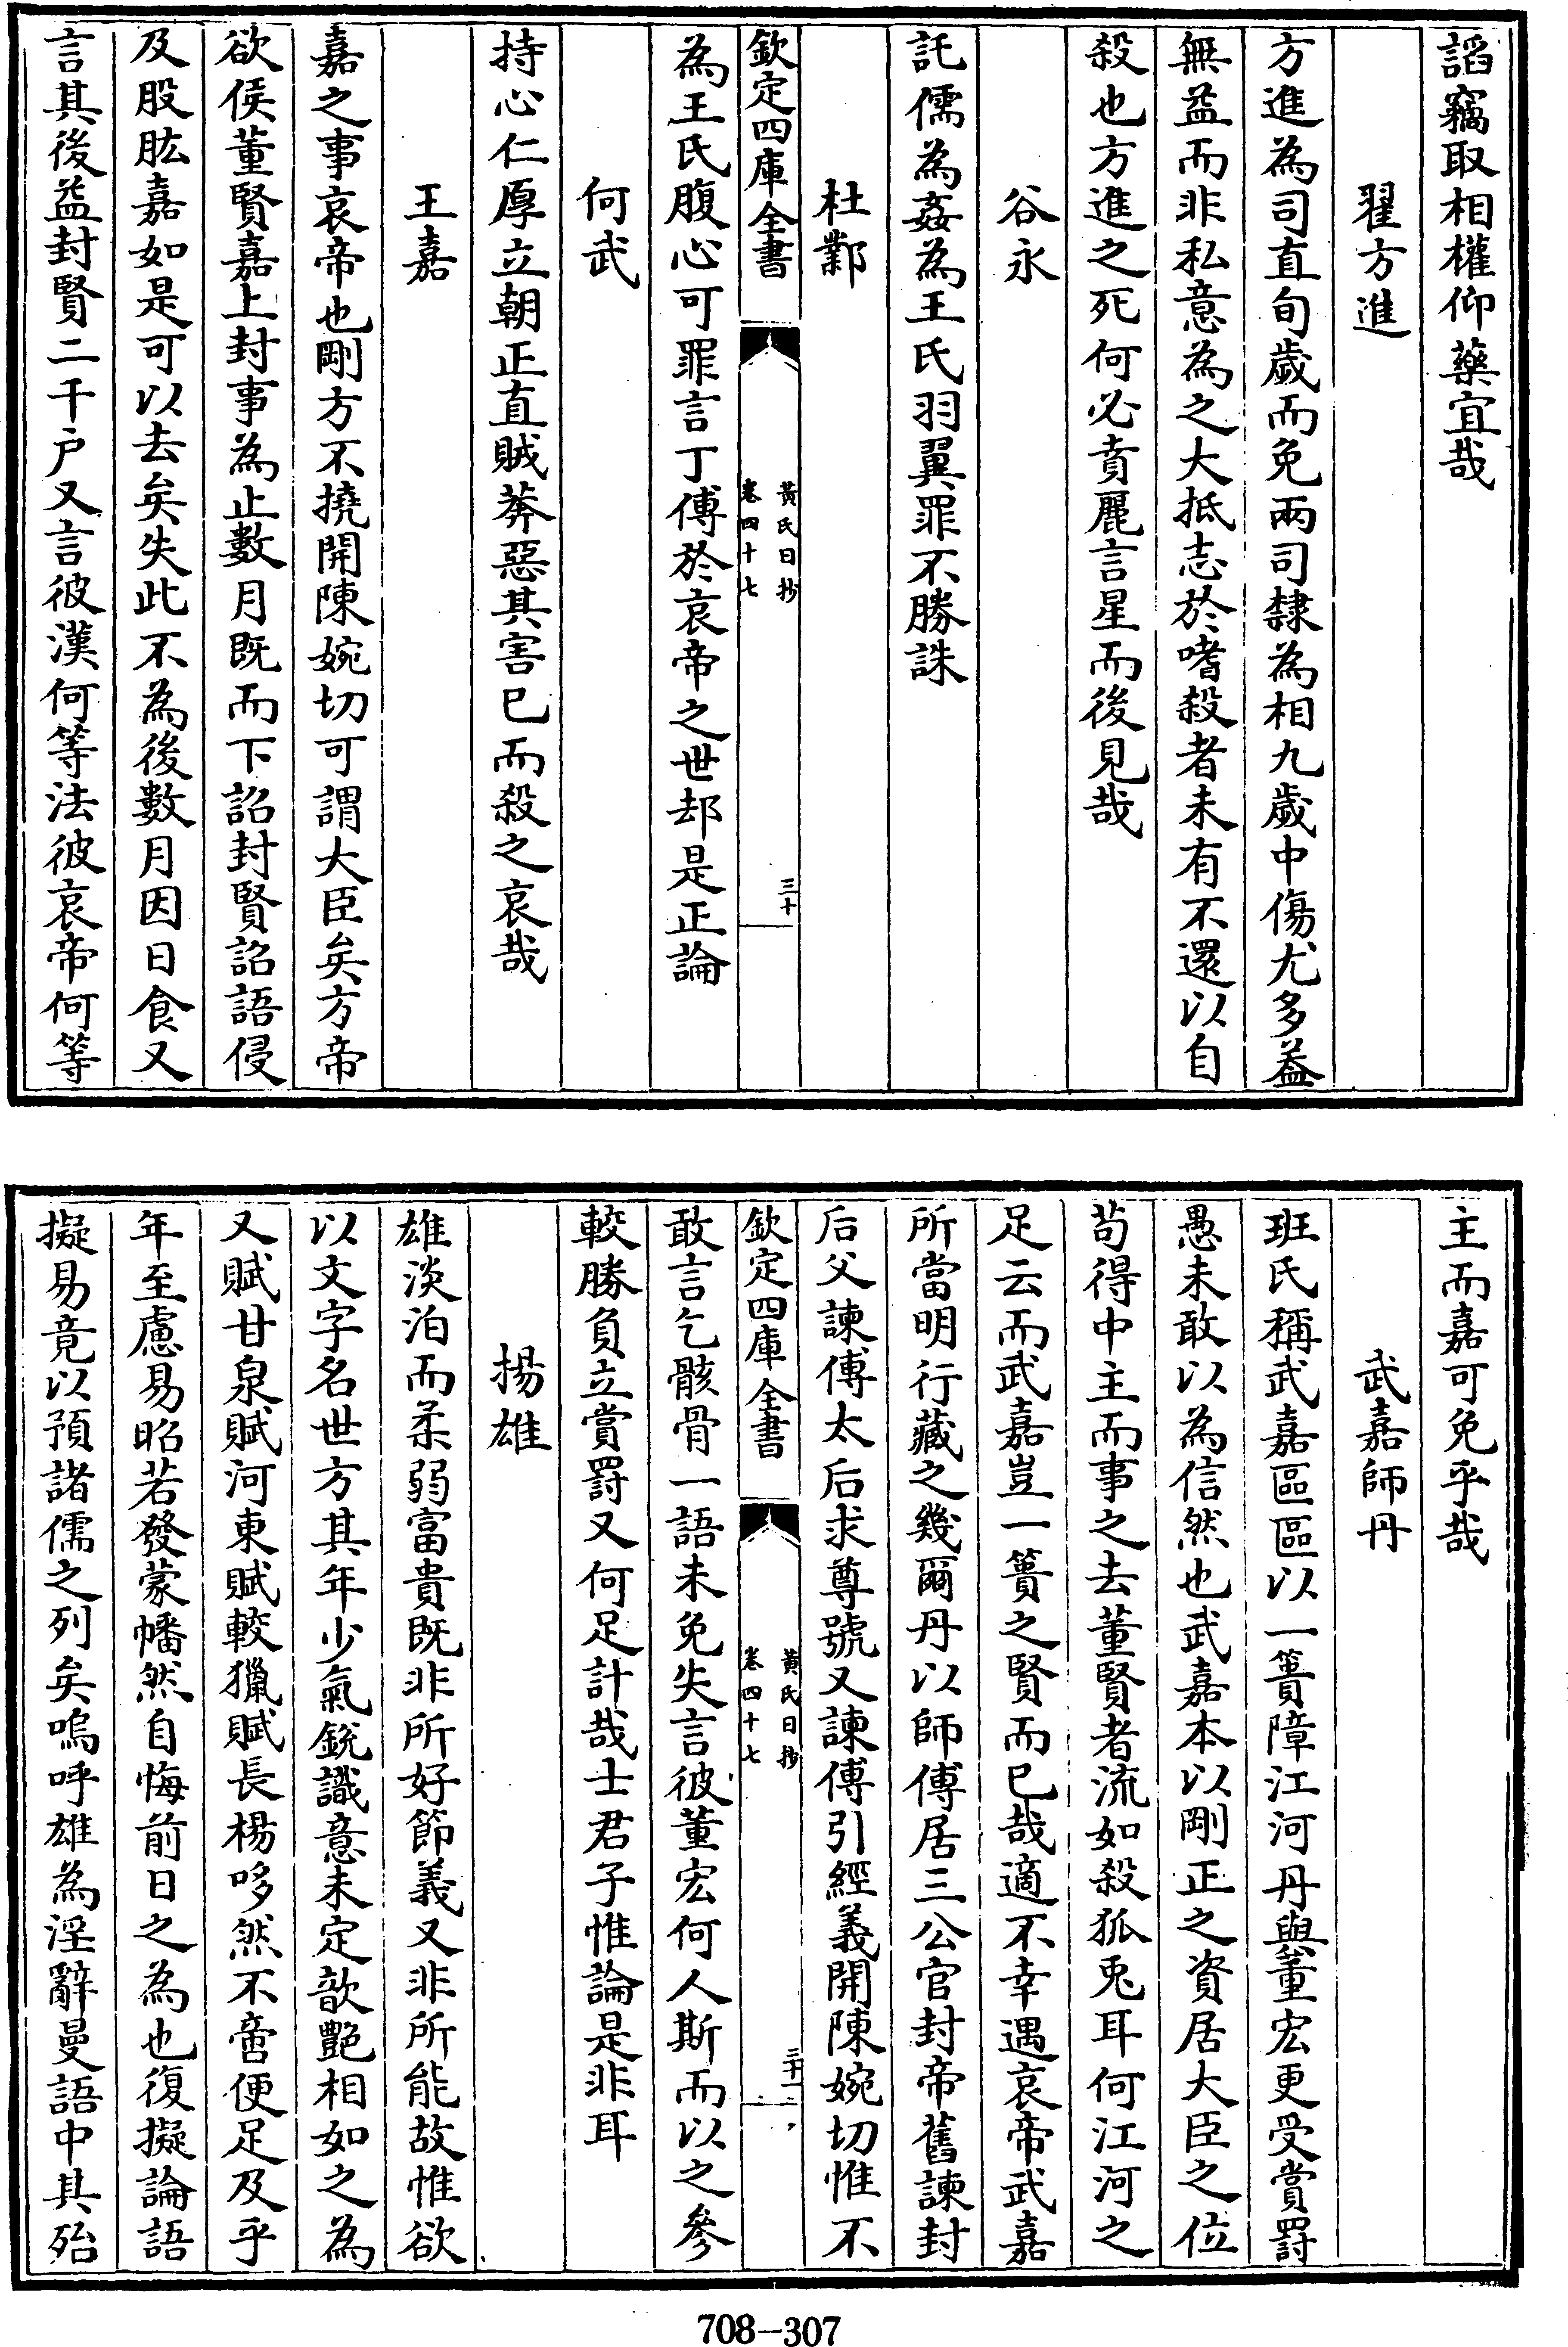 謟竊取相權仰藥宜哉
翟方進
方進為司直旬歲而免兩司隸為相九歲中傷尤多益
無益而非私意為之大抵志於嗜殺者未有不還以自
殺也方進之死何必賁麗言星而後見哉
谷永
託儒為姦為王氏羽翼罪不勝誅
杜鄴
欽定四庫全書
黃氏日抄
卷四十七
三十
為王氏腹心可罪言丁傅於哀帝之世却是正論
何武
持心仁厚立朝正直賊莽惡其害已而殺之哀哉
王嘉
嘉之事哀帝也剛方不撓開陳婉切可謂大臣矣方帝
欲侯董賢嘉上封事為止數月既而下詔封賢詔語侵
及股肱嘉如是可以去矣失此不為後數月因日食又
言其後益封賢二千户又言彼漢何等法彼哀帝何等
主而嘉可免乎哉
武嘉師丹
班氏稱武嘉區區以一簣障江河丹與董宏更受賞罰
愚未敢以為信然也武嘉本以剛正之資居大臣之位
苟得中主而事之去董賢者流如殺狐兎耳何江河之
足云而武嘉豈一簣之賢而已哉適不幸遇哀帝武嘉
所當明行藏之幾爾丹以師傅居三公官封帝舊諫封
后父諫傅太后求尊號又諫傅引經義開陳婉切惟不
欽定四庫全書
黃氏日抄
卷四十七
三十一
敢言乞骸骨一語未免失言彼董宏何人斯而以之參
較勝負立賞罰又何足計哉士君子惟論是非耳
揚雄
雄淡泊而柔弱富貴既非所好節義又非所能故惟欲
以文字名世方其年少氣銳識意未定歆艷相如之為
又賦甘泉賦河東賦較獵賦長楊哆然不啻便足及乎
年至慮易昭若發蒙幡然自悔前日之為也復擬論語
擬易竟以預諸儒之列矣嗚呼雄為淫辭曼語中其殆
708-307